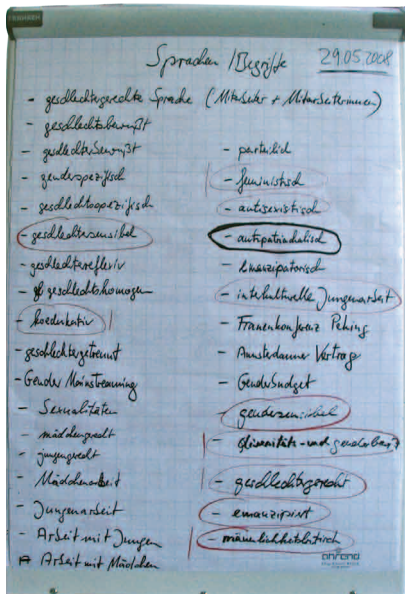 Sprachen / Begriffe 29.05.2008
- geschlechtergerechte Sprache (Mitarbeiter + Mitarbeiterinnen)
- geschlechtsbewußt
- geschlechterbewußt
- genderspezifisch
- geschlechtsspezifisch
- geschlechtersensibel
- geschlechterreflexiv
- geschlechtshomogen
- koedukativ
- geschlechtergetrennt
- Gender Mainstreaming
- Sexualitäten
- mädchengerecht
- jungengerecht
- Mädchenarbeit
- Jungenarbeit
- Arbeit mit Jungen
- Arbeit mit Mädchen
- parteilich
- feministisch
- antisexistisch
- antipatriachalisch
- emanzipatorisch
- interkulturelle Jungenarbeit
- Frauenkonferenz Peking
- Amsterdamer Vertrag
- Genderbudget
- gendersensibel
- diversitäts- und
- geschlechtergerecht
- emanzipiert
- männlichkeitskritisch
ahrend